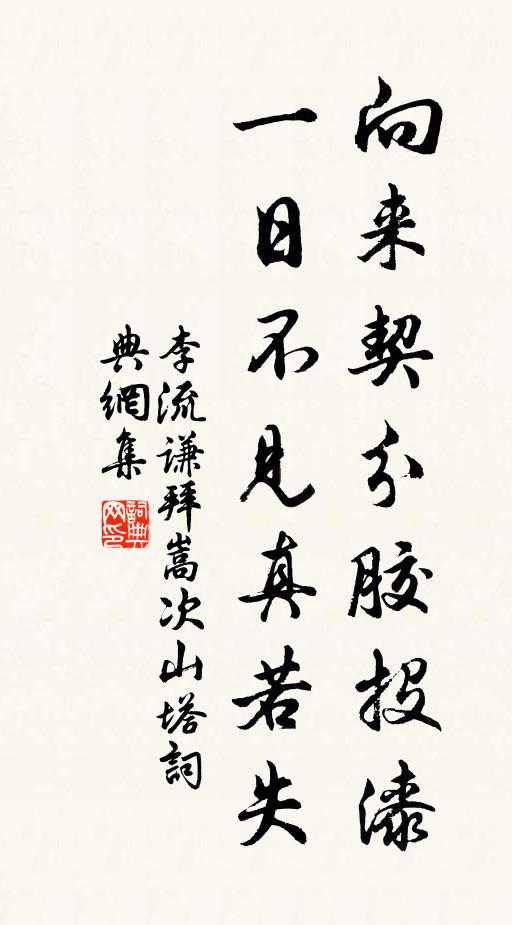 向来契分胶投漆
一日不见真若失
李流谦拜嵩次山塔詞
典網集
詞典
网印